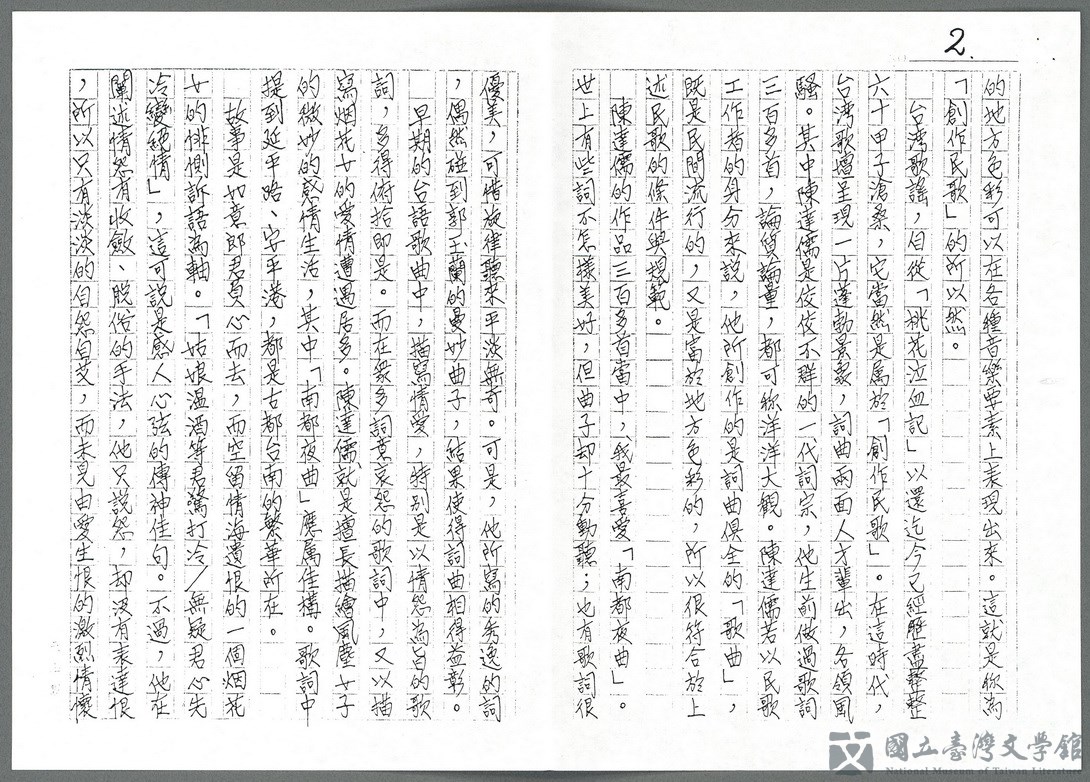 2.
的地方色彩可以在各種音樂要素上表現出來。這就是稱為
「創作民歌」的所以然。
台灣歌謠,自從「桃花泣血記」以還迄今已經歷盡整整
六十甲子滄桑,它當然是屬於「創作民歌」。在這時代,
台灣歌壇呈現一片蓬勃景象,詞曲兩面人才輩出,各領風
騷。其中陳達儒是佼佼不群的一代詞宗,他生前做過歌詞
三百多首,論質論量,都可称洋洋大觀。陳達儒若以民歌
工作者的身分來說,他所創作的是詞曲俱全的「歌曲」,
既是民間流行的,又是富於地方色彩的,所以很符合於上
述民歌的條件與規範。
陳達儒的作品三百多首當中,我最喜愛「南都夜曲」。
世上有些詞不怎樣美好,但曲子却十分動聽;也有歌詞很
優美,可惜旋律聽來平淡無奇。可是,他所寫的秀逸的詞
,偶然碰到郭玉蘭的曼妙曲子,結果使得詞曲相得益彰。
早期的台語歌曲中,描寫情愛,特別是以情怨為旨的歌
詞,多得俯拾即是。而在眾多詞意哀怨的歌詞中,又以描
寫烟花女的愛情遭遇居多。陳達儒就是擅長描繪風塵女子
的微妙的感情生活,其中「南都夜曲」應屬佳構。歌詞中
提到延平路、安平港,都是古都台南的繁華所在。
故事是如意郎君負心而去,而空留情海遺恨的一個烟花
女的悱惻訴語為軸。「姑娘溫酒等君驚打冷/無疑君心先
冷變絕情」,這可說是感人心弦的傳神佳句。不過,他在
闡述情怨有收斂、脫俗的手法,他只說怨,却沒有表達恨
,所以只有淡淡的自怨自艾,而未見由愛生恨的激烈情懷
國立臺灣文學館
National Museum of Taiwan Literature